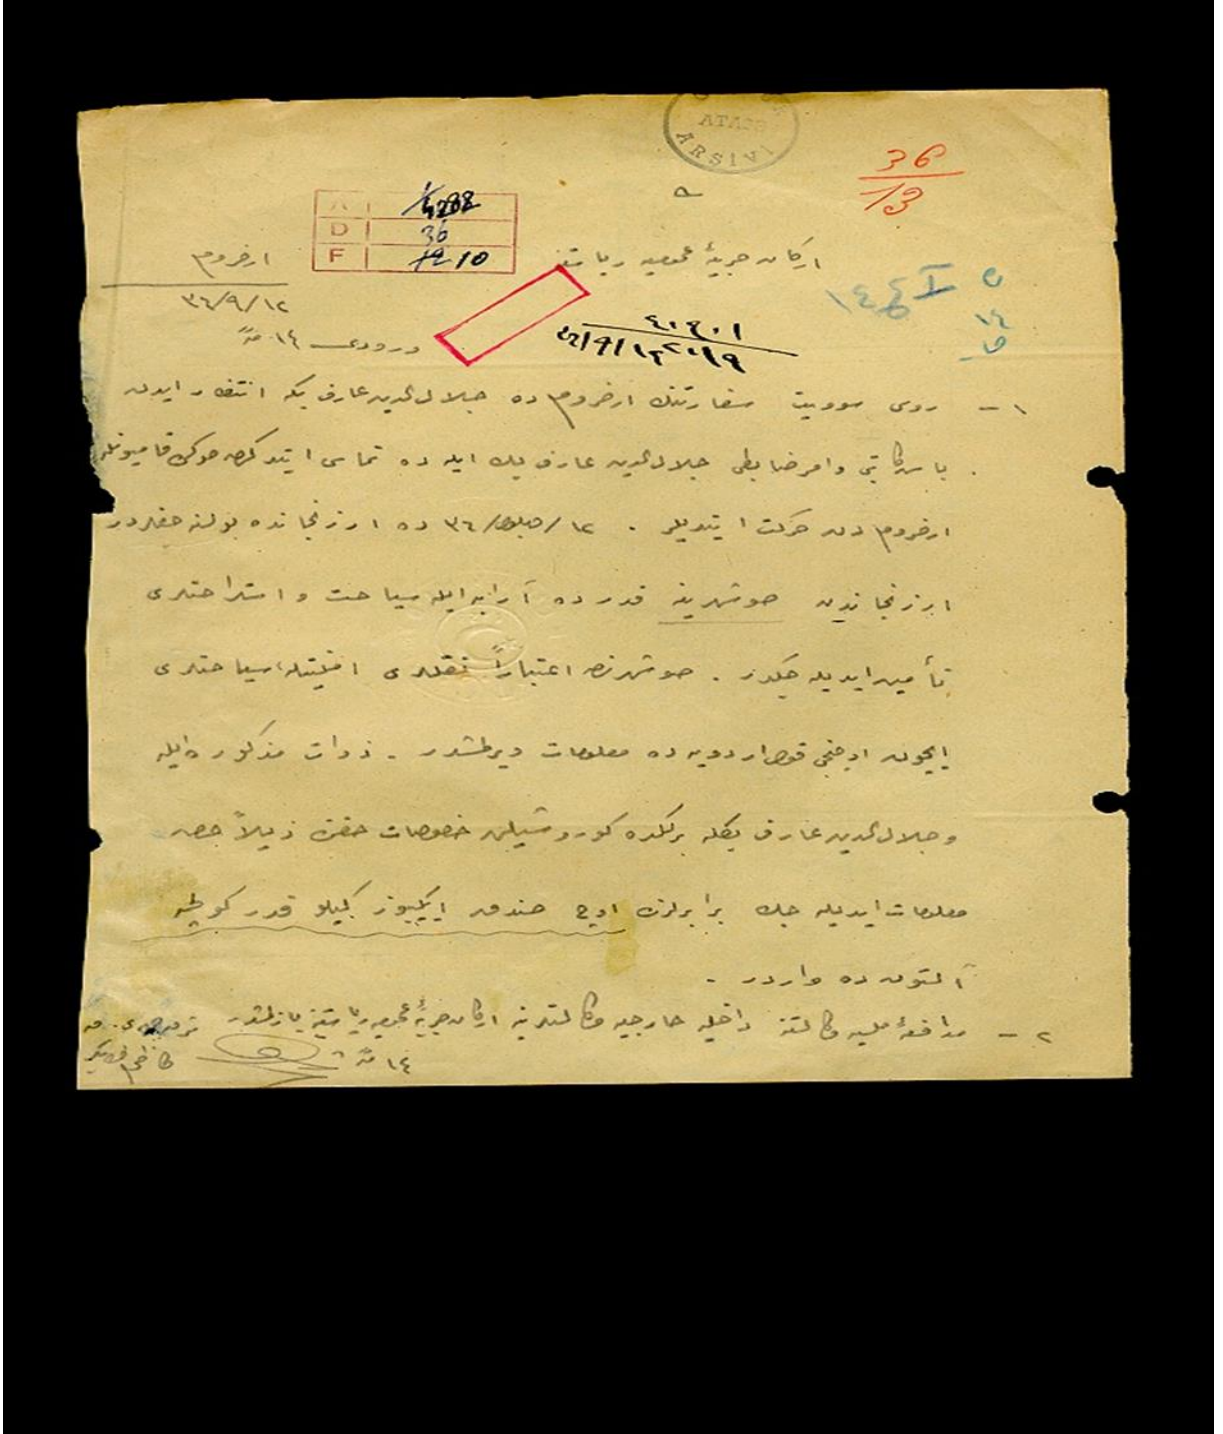 ATASE
ARŞİVİ
36
13
A 1/4282
D 36
F 10
اركان حربيۀ عموميه رياستنه
ارضروم
٣٦/٩/١٢
ورودى ١٤ منه
١ـ روس سوويت سفارتنك ارضرومده جلال الدين عارف بكه انتظار ايدن
باش كاتبى وامر ضابطى جلال الدين عارف بك ايله ده تماس ايتدكدن صوكره قاميونله
ارضرومدن حركت ايتديلر . ١٢/ايلول/٣٦ ده ارزنجانده بولنه جقلردر
ارزنجاندن صوشهرينه قدر ده آرابه ايله سياحت و استراحتلرى
تأمين ايديله جكدر . صوشهرندن اعتباراً نقللرى امنيتله سياحتلرى
ايچون اوچنجى قول اردويه ده معلومات ويرلمشدر . ذوات مذكوره ايله
وجلال الدين عارف بكله برلكده كوروشيلن خصوصات حقنده ذيلاً عرض
معلومات ايديله جك برابرلرنده اوچ صندوق ايكييوز كيلو قدر كولچه
آلتون ده واردر .
٢ـ مدافعۀ مليه وكالتنه داخليه خارجيه وكالتلرينه اركان حربيۀ عموميه رياستنه يازلمشدر
كاظم قره بكر
١٤ منه